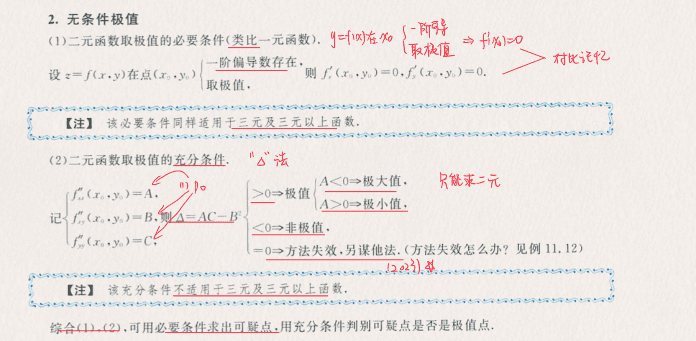 2. 无条件极值
(1)二元函数取极值的必要条件(类比一元函数). y=f(x)在x₀ { 一阶可导 取极值 ⇒ f'(x₀)=0
设 z=f(x,y)在点(x₀,y₀) { 一阶偏导数存在, 取极值, 则 f'ₓ(x₀,y₀)=0,f'ᵧ(x₀,y₀)=0. 对比记忆
【注】 该必要条件同样适用于三元及三元以上函数.
(2)二元函数取极值的充分条件. "Δ"法
记 { f''ₓₓ(x₀,y₀)=A, f''ₓᵧ(x₀,y₀)=B, f''ᵧᵧ(x₀,y₀)=C, 则 Δ=AC−B² { >0⇒极值 { A<0⇒极大值, A>0⇒极小值, 只能求二元
<0⇒非极值,
=0⇒方法失效,另谋他法.(方法失效怎么办？见例 11,12)
【注】 该充分条件不适用于三元及三元以上函数.
综合(1),(2),可用必要条件求出可疑点,用充分条件判别可疑点是否是极值点.